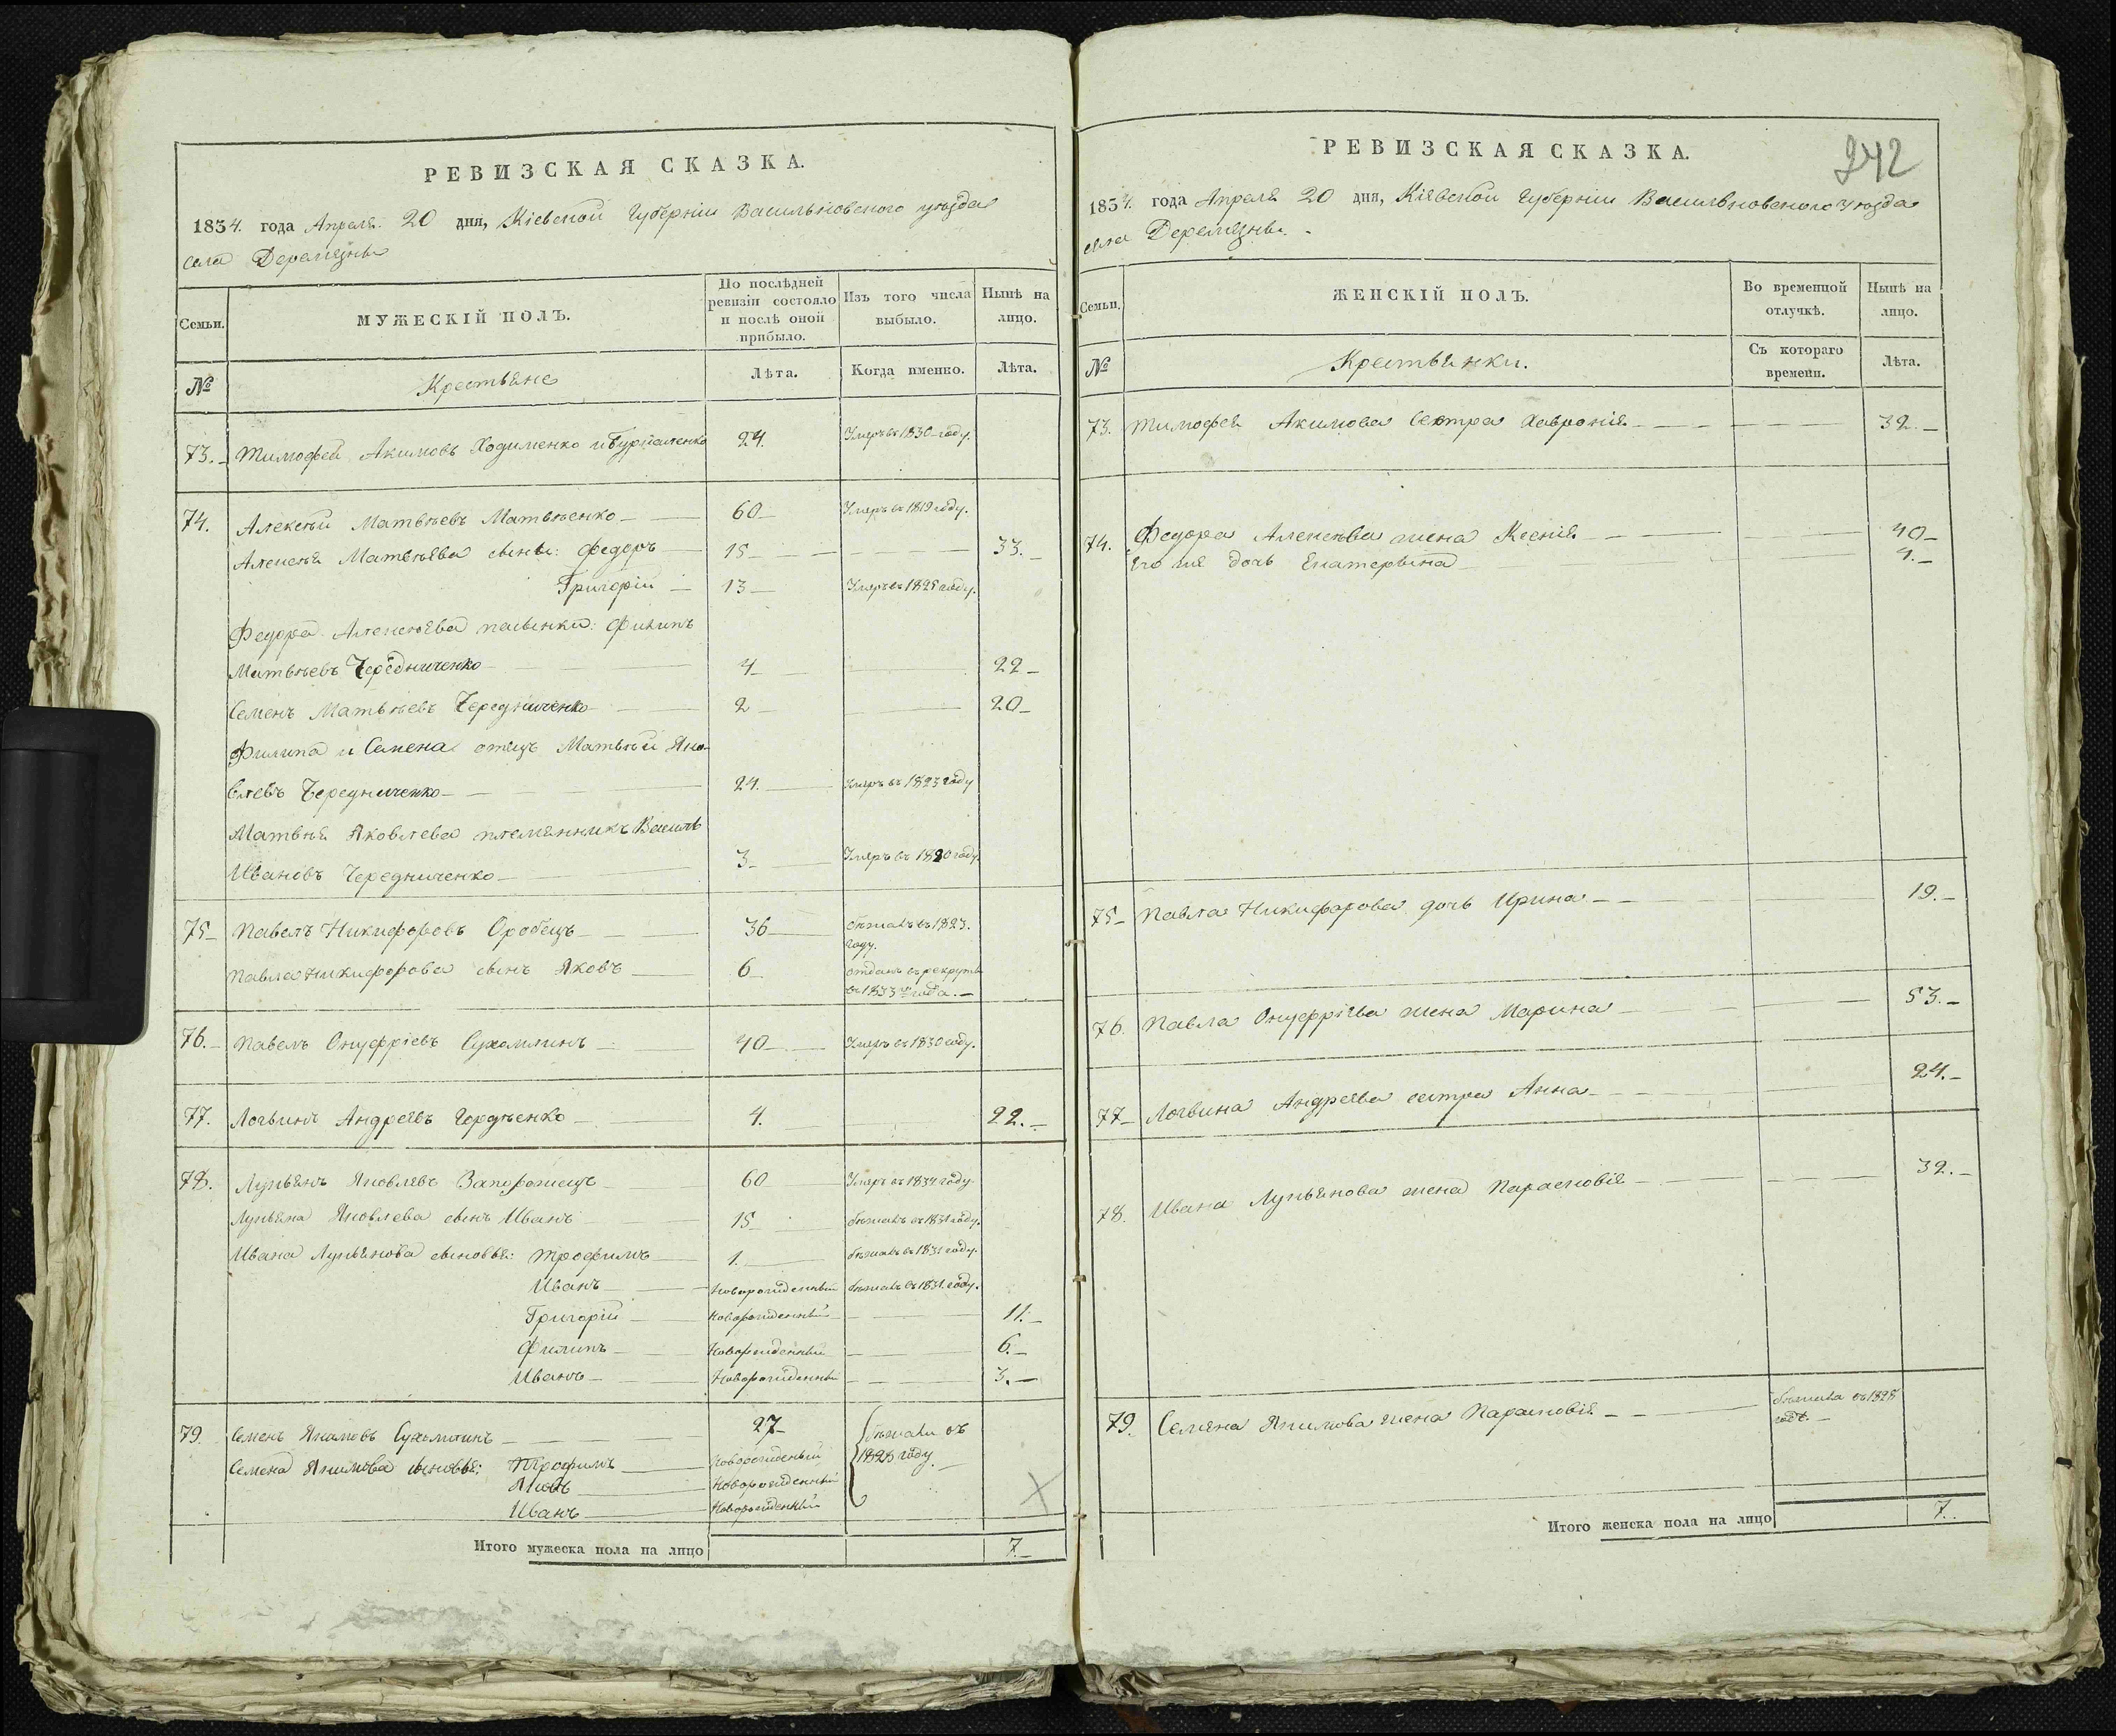 РЕВИЗСКАЯ СКАЗКА.
1834. года Апреля 20 дня, Кіевской Губерніи Васильковскаго уѣзда
села Деремезны
Семьи.
МУЖЕСКІЙ ПОЛЪ.
По послѣдней ревизіи состояло и послѣ оной прибыло.
Изъ того числа выбыло.
Нынѣ на лицо.
№
Крестьяне
Лѣта.
Когда именно.
Лѣта.
73. Тимофей Акимовъ Ходименко 24. Умеръ въ 1830 году.
74. Алексѣй Матвѣевъ Матвѣенко 60 Умеръ въ 1819 году.
Алексѣя Матвѣева сыны: Федоръ 15 33.
Григорій 13 Умеръ въ году.
Федора Алексѣева пасынки: Филипъ
Матвѣевъ Чередниченко 4 22
Семенъ Матвѣевъ Чередниченко 2 20
Филипа и Семена отецъ Матвѣй Яко-
влевъ Чередниченко 24. Умеръ въ 1823 году
Матвѣя Яковлева племянникъ Василь
Ивановъ Чередниченко 3 Умеръ въ 1820 году.
75 Павелъ Никифоровъ Оробецъ 36 бѣжалъ въ 1823. году.
Павла Никифорова сынъ Яковъ 6 отданъ въ рекруты въ 1833 года.
76. Павелъ Онуфріевъ Сухомлинъ 40 Умеръ въ 1830 году.
77. Логвинъ Андреевъ Гордѣенко 4. 22.
78. Лукьянъ Яковлевъ Запорожецъ 60 Умеръ въ 1834 году.
Лукьяна Яковлева сынъ Иванъ 15 бѣжалъ въ 1831 году.
Ивана Лукьянова сыновья: Трофимъ 1. бѣжалъ въ 1831 году.
Иванъ Новорожденный бѣжалъ въ 1831. году.
Григорій Новорожденный 11.
Филипъ Новорожденный 6.
Иванъ Новорожденный 3.
79. Семенъ Якимовъ Сухомлинъ 27 бѣжали въ
Семена Якимова сыновья: Трофимъ Новорожденный 1828 году.
Яковъ Новорожденный
Иванъ Новорожденный
Итого мужеска пола на лицо 7.
242
РЕВИЗСКАЯ СКАЗКА.
1834. года Апреля 20 дня, Кіевской Губерніи Васильковскаго уѣзда
села Деремезны.
Семьи.
ЖЕНСКІЙ ПОЛЪ.
Во временной отлучкѣ.
Нынѣ на лицо.
№
Крестьянки.
Съ котораго времени.
Лѣта.
73. Тимофея Акимова сестра Хавронія 32.
74. Федора Алексѣева жена Ксенія 40
Его же дочь Екатерына 4.
75 Павла Никифорова дочь Ирина 19.
76. Павла Онуфріева жена Марина 53.
77 Логвина Андреева сестра Анна 24.
78. Ивана Лукьянова жена Парасковія 32.
79. Семена Якимова жена Парасковія бѣжала въ 1828 годѣ.
Итого женска пола на лицо 7.